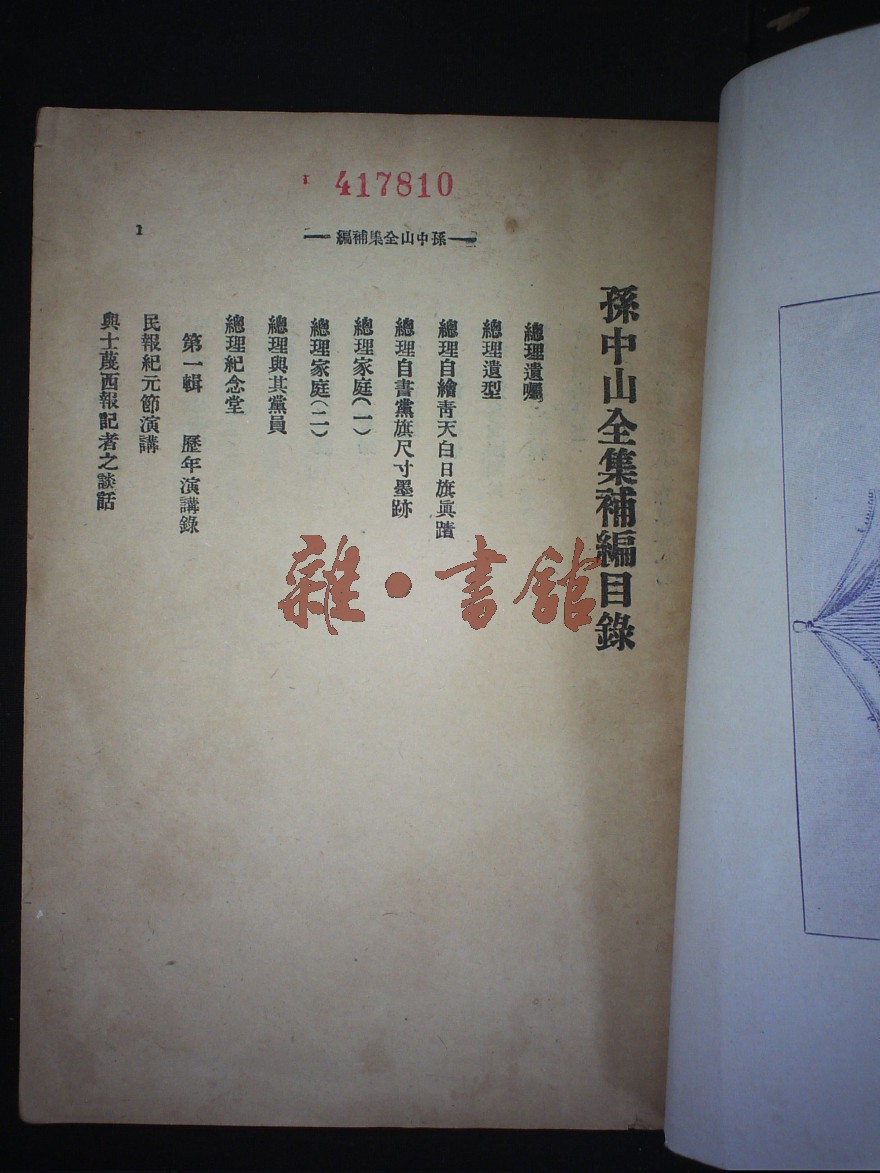 I 417810
孫中山全集補編
1
孫中山全集補編目錄
總理遺囑
總理遺型
總理自繪青天白日旗眞蹟
總理自書黨旗尺寸墨跡
總理家庭(一)
總理家庭(二)
總理與其黨員
總理紀念堂
第一輯 歷年演講錄
民報紀元節演講
與士蔑西報記者之談話
雜·書館